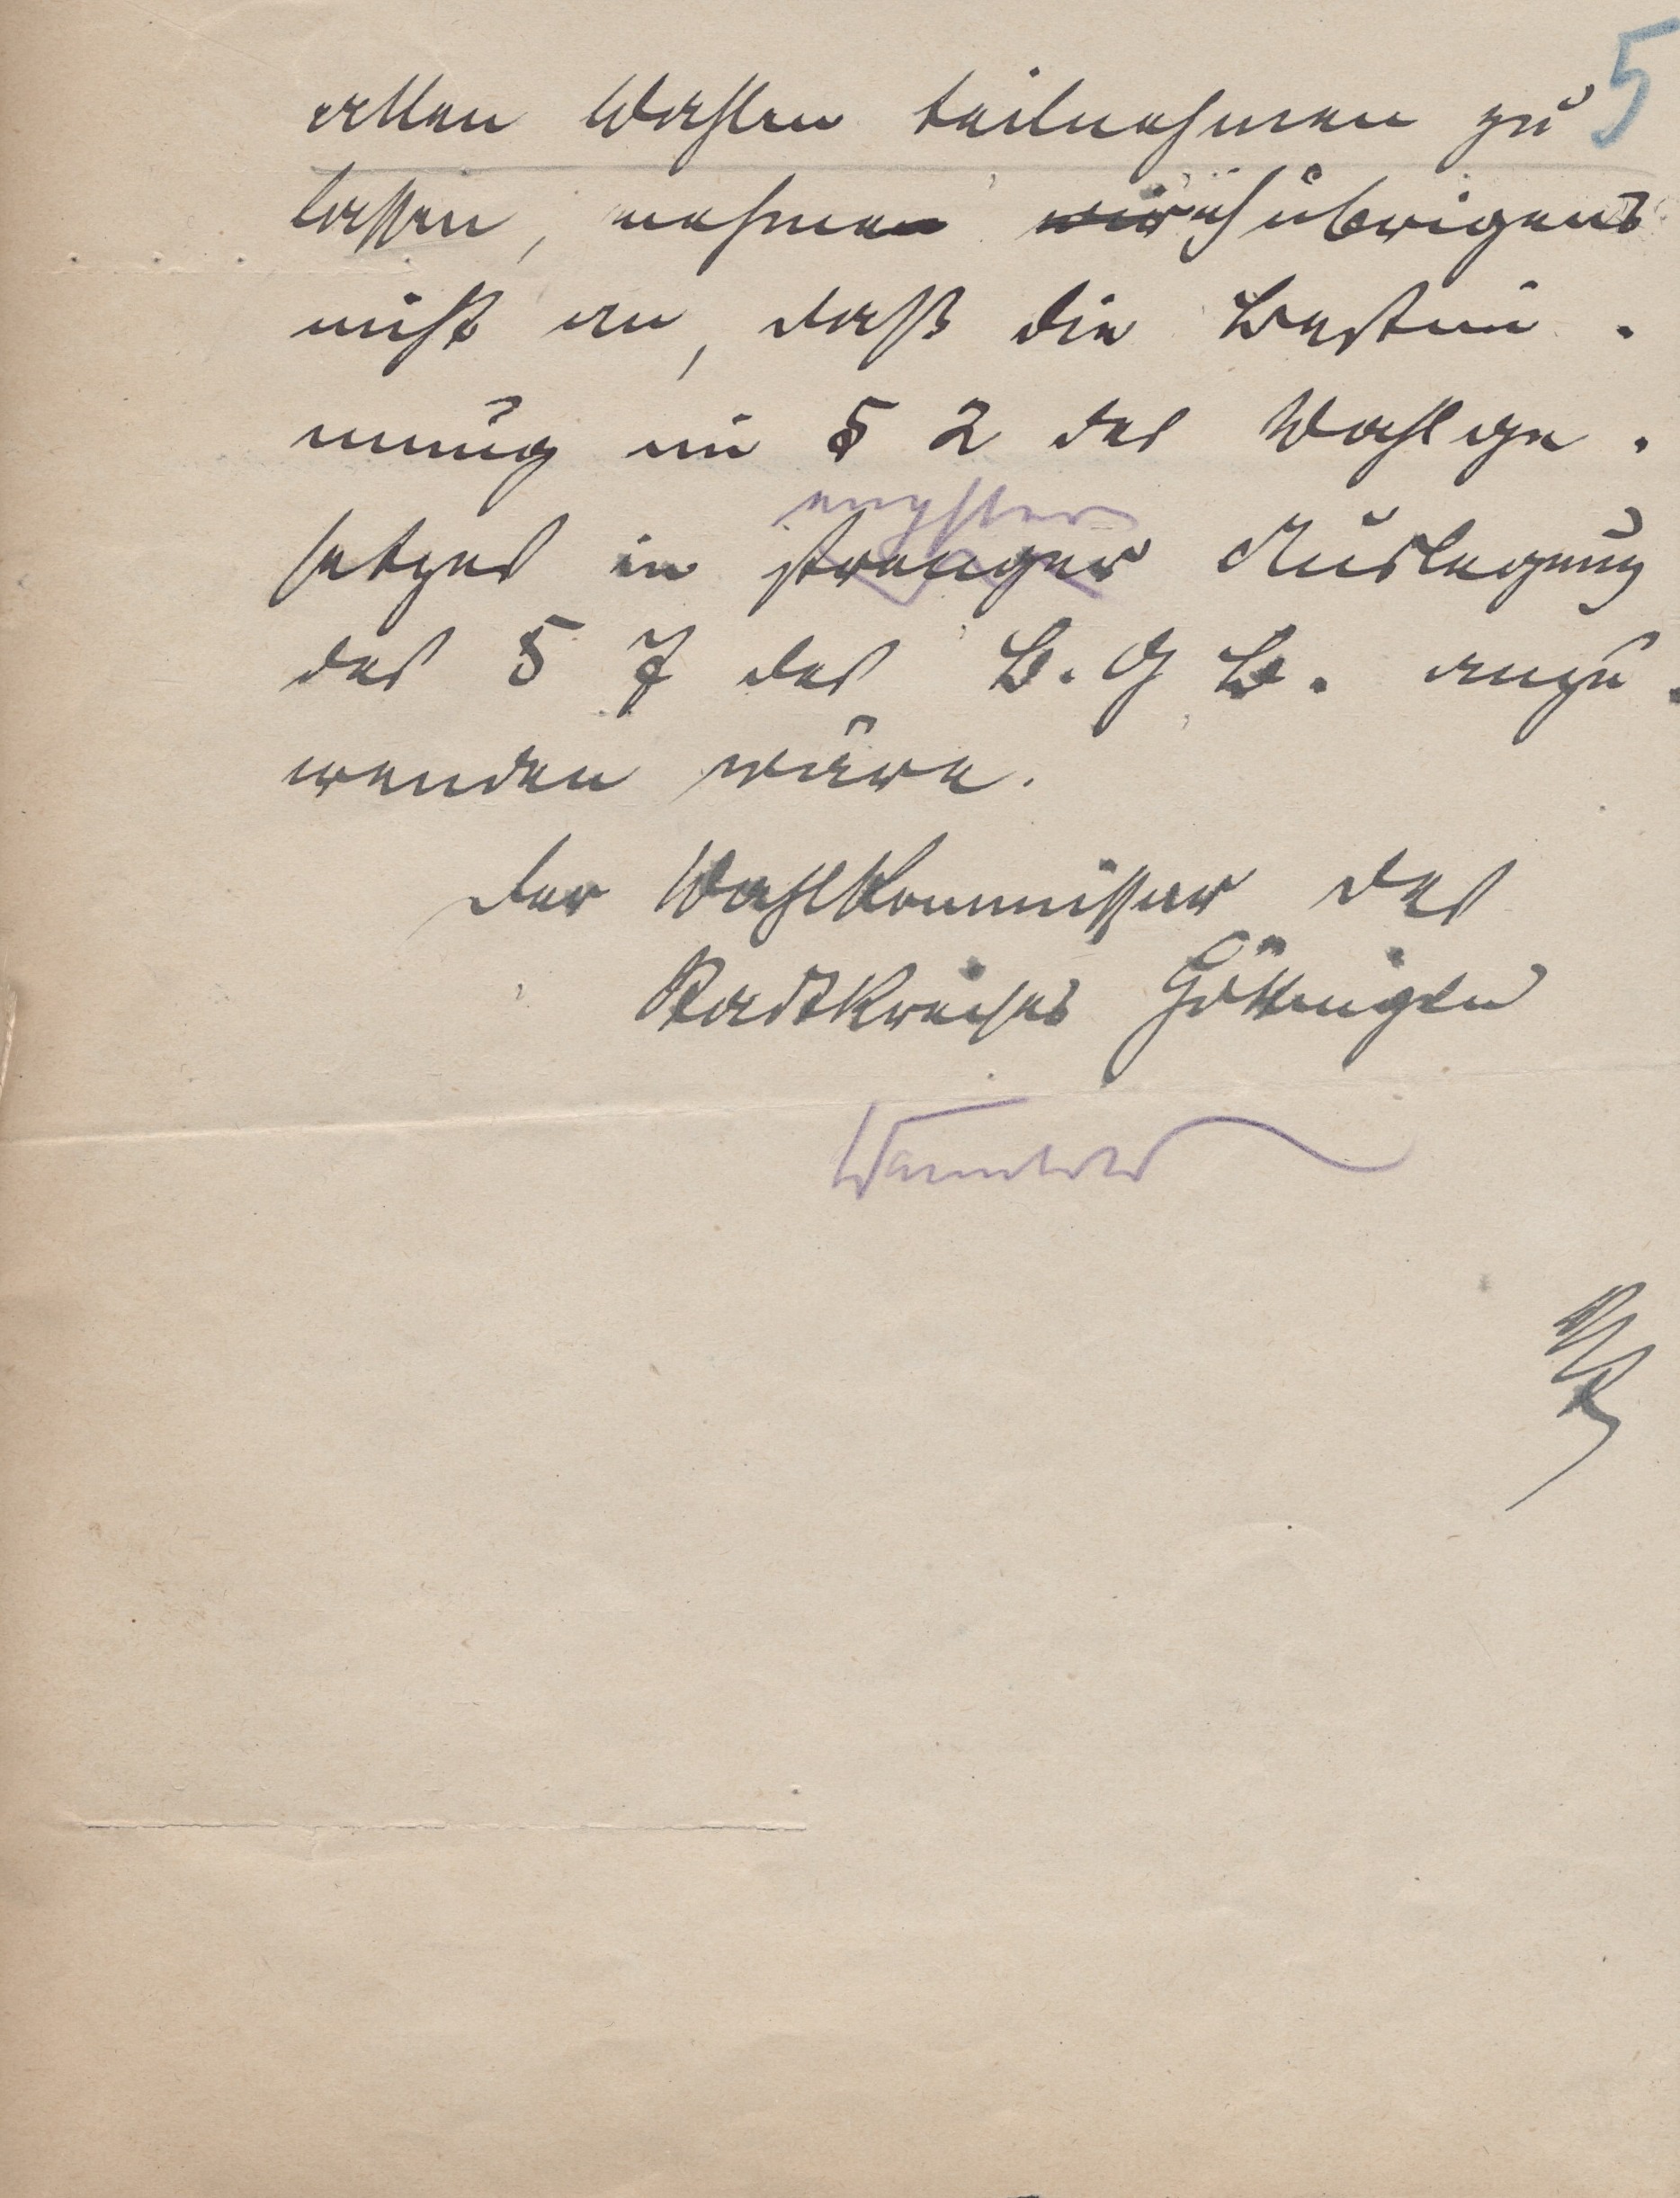 5
allen Wahlen teilnehmen zu
lassen, nehme wir ich übrigens
nicht an, daß die Bestim-
mung im § 2 des Wahlge-
engster
setzes in strenger Auslegung
des § 7 des B.G.B. anzu-
wenden wäre.
Der Wahlkommissar des
Stadtkreises Göttingen